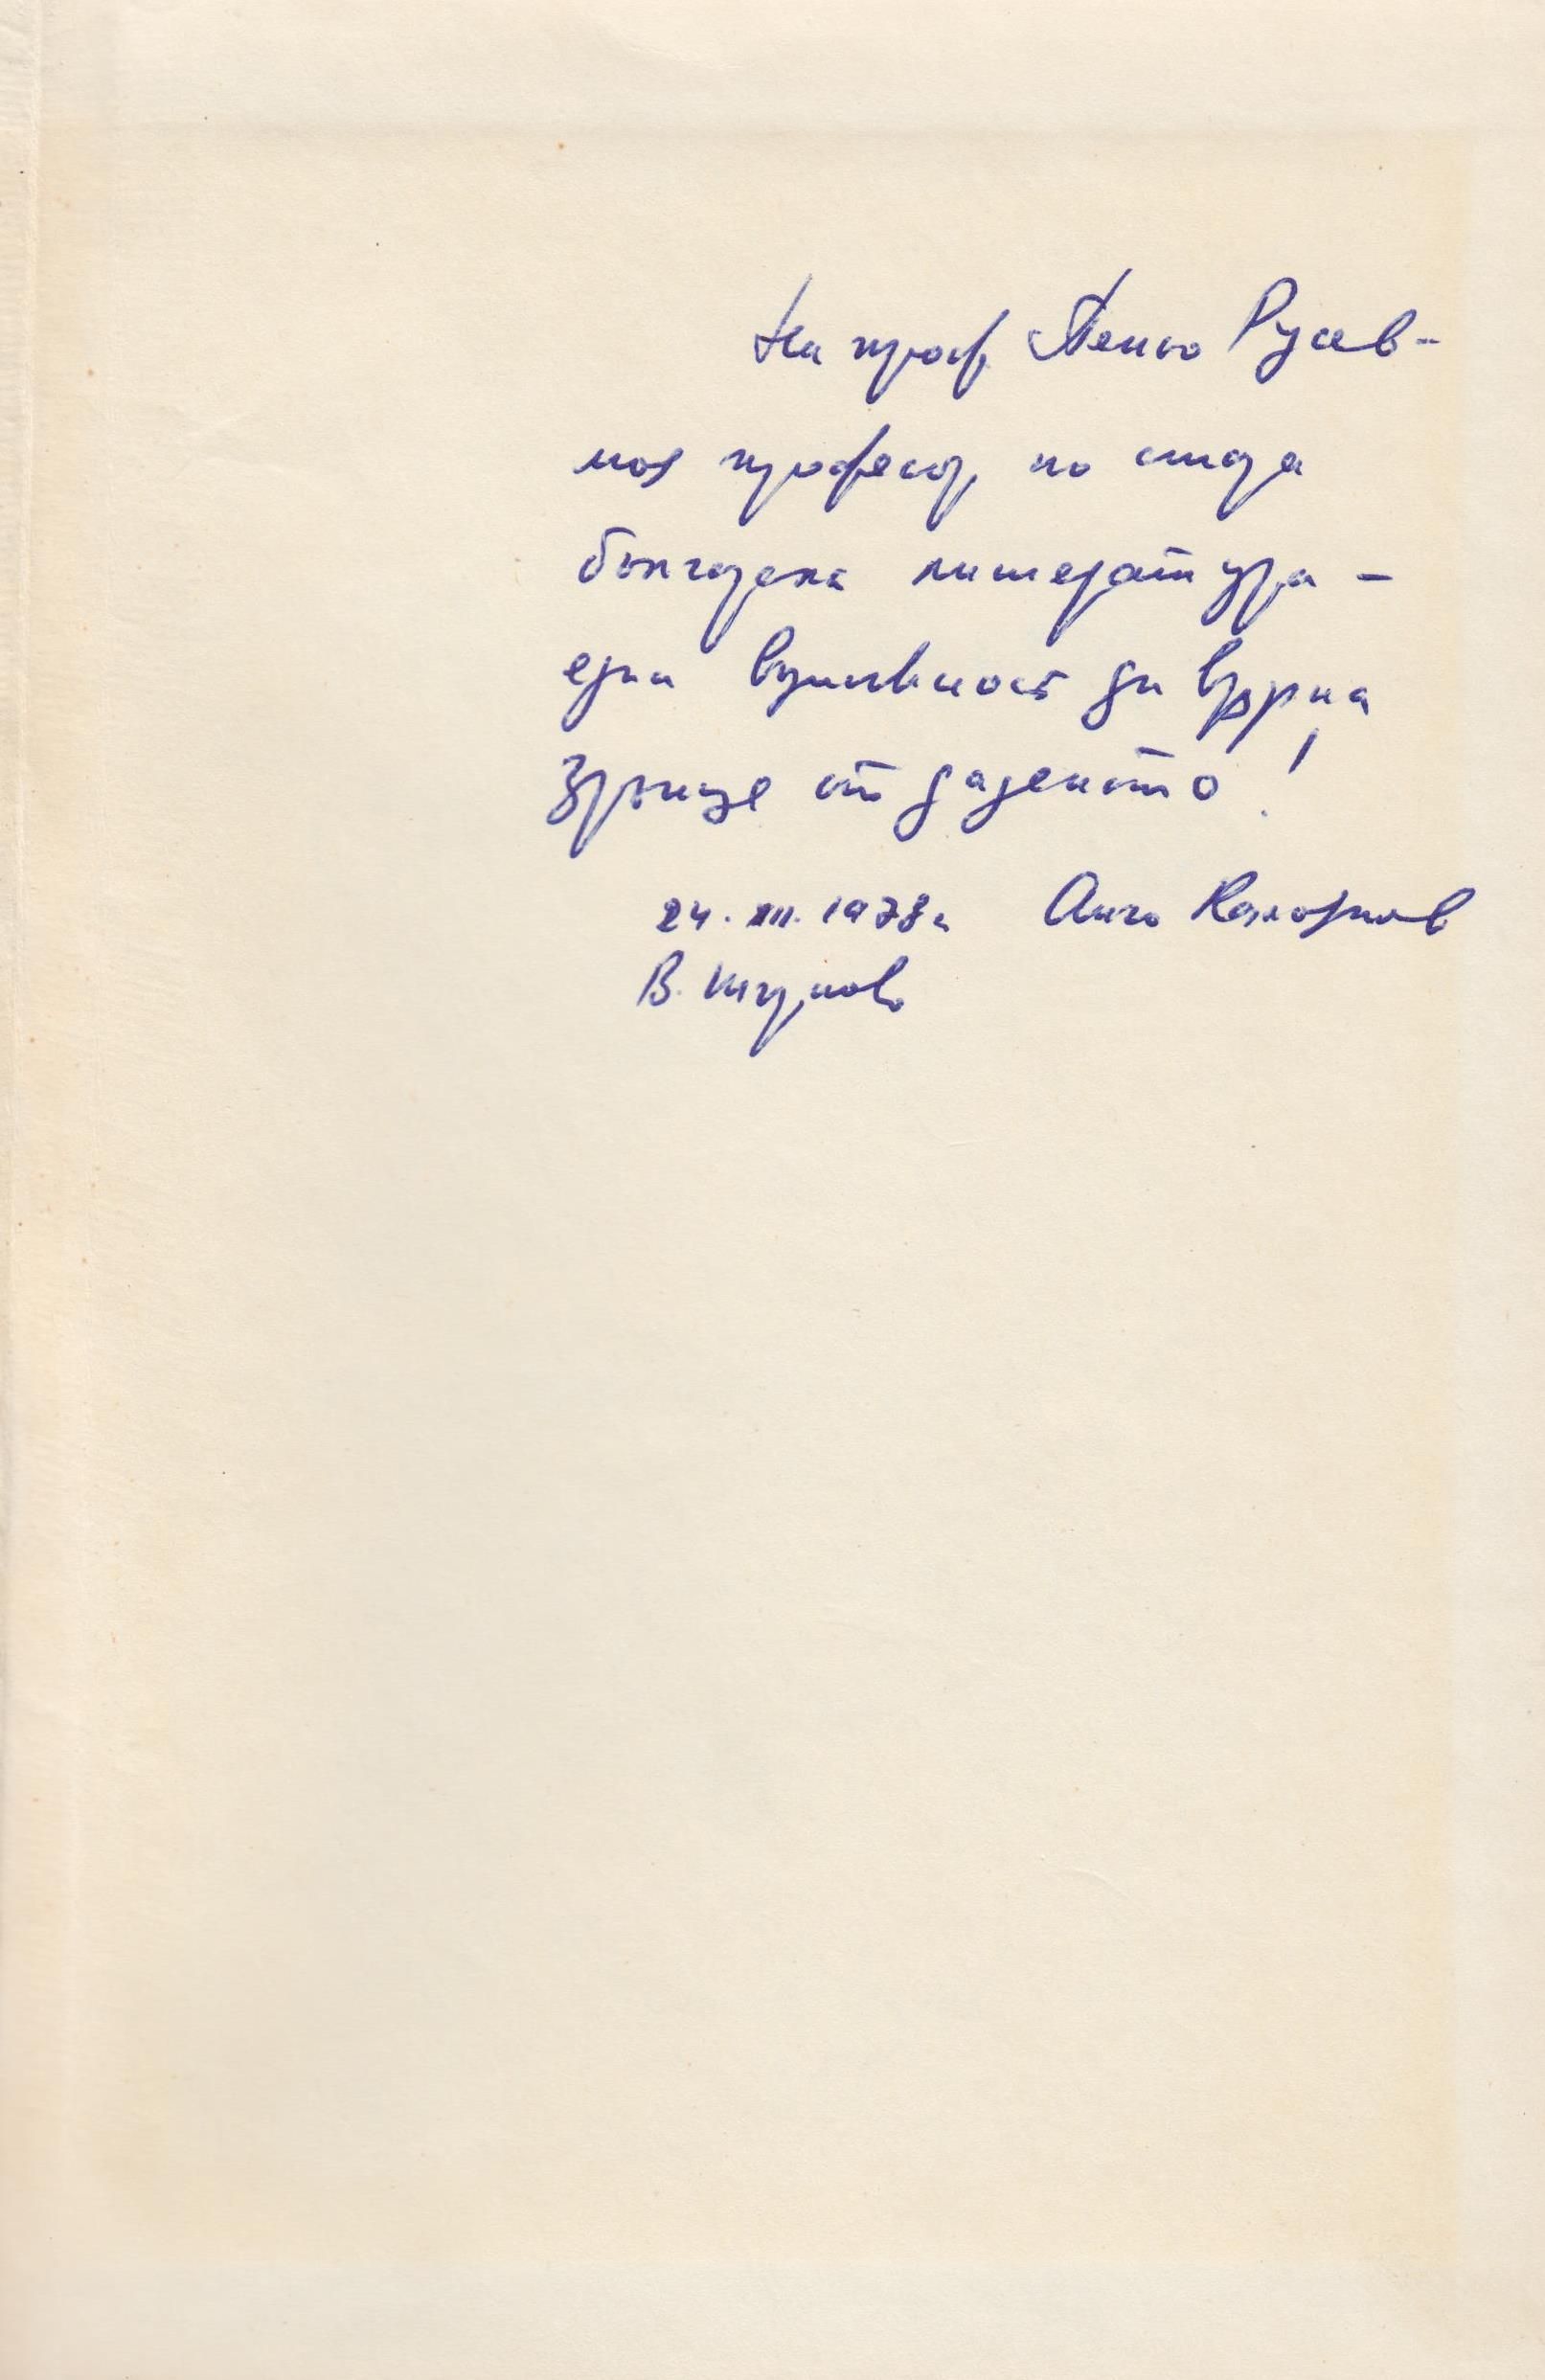 На проф. Пеньо Русев -
моя професор по стара
българска литература -
една възможност да върна
зрънце от даденото!
24. XII. 1978 г. Анчо Калоянов
В. Търново